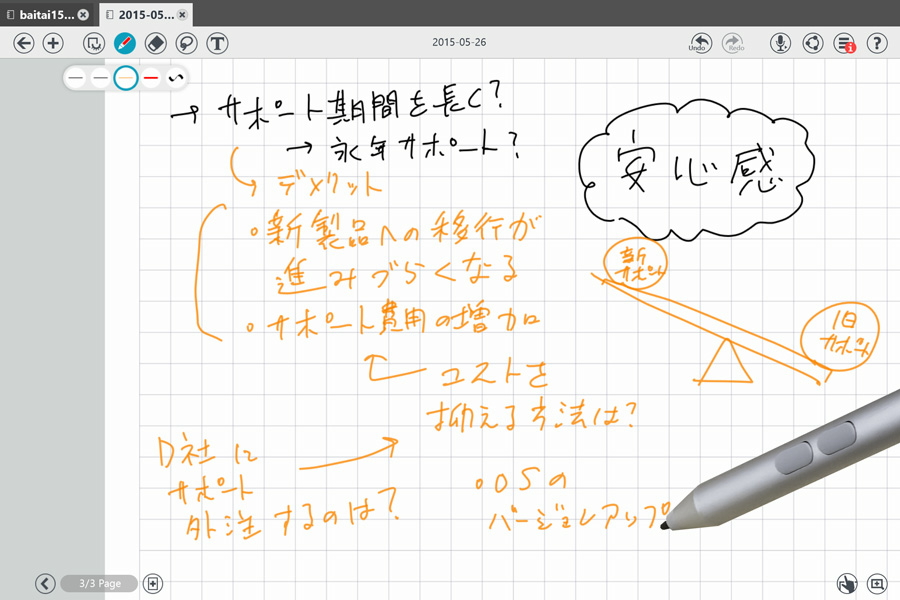 baitai15...
2015-05...
2015-05-26
Undo
Redo
→ サポート期間を長く?
→ 永年サポート?
デメリット
・新製品への移行が
進みづらくなる
・サポート費用の増加
コストを
抑える方法は?
D社に
サポート
外注するのは?
・OSの
バージョンアップ
安心感
新
サポート
旧
サポート
3/3 Page